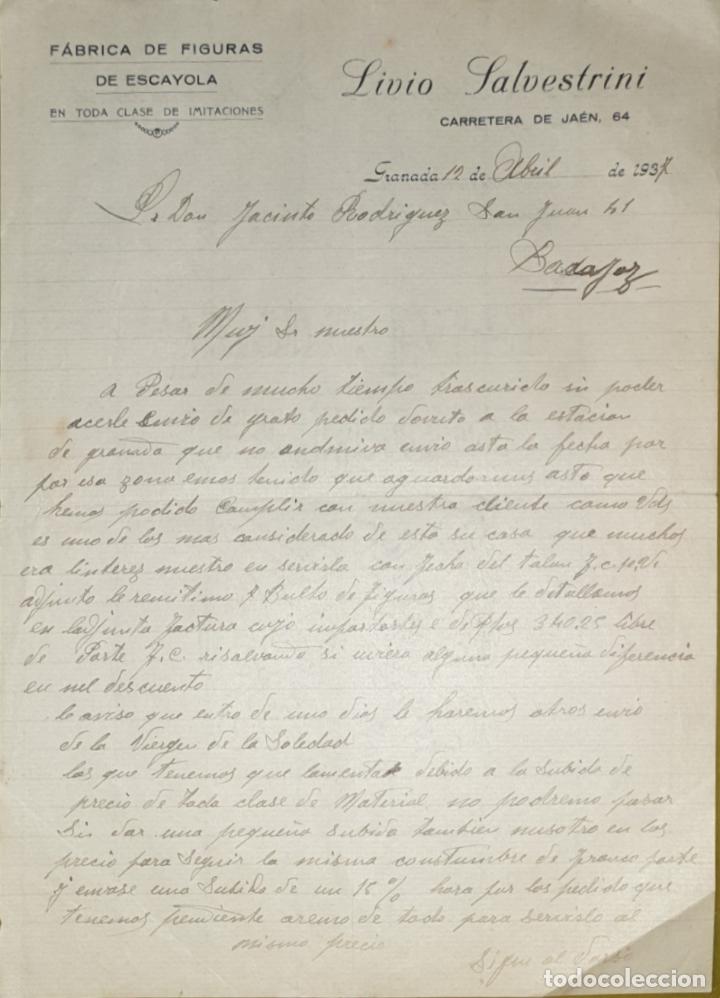 FÁBRICA DE FIGURAS
DE ESCAYOLA
EN TODA CLASE DE IMITACIONES
Livio Salvestrini
CARRETERA DE JAÉN, 64
Granada 12 de Abril de 1937
Sr Don Jacinto Rodriguez San Juan 41
Badajoz
Muy Sr nuestro
A Pesar de mucho tiempo trascurido sin poder
acerle Envio de grato pedido a la estacion
de granada que no andmiva envio asta la fecha por
por esa zona emos tenido que aguardarnus asta que
hemos podido Complir con nuestro cliente como Vds
es uno de los mas considerado de esta su casa que muchos
era linterez nuestro en servirla con fecha del talon F.C.
adjunto le remitimo 1 Bulto de figuras que le detallamos
en ladjunta factura cujo de Ptas 340.25 libre
de Porte F.C. risalvando si uviera alguna pequeña diferencia
en nel descuento
le aviso que entro de uno dias le haremos otros envio
de la Viergen de la Soledad
los que tenemos que lamentar debido a la subida de
precio de toda clase de Material no podremo pasar
Sin dar una pequeña subida tambien nusotro en los
precio para Seguir la misma constumbre de franco porte
y envase una Subida de un 15% hora por los pedido que
tenemos pendiente aremo de todo para servirlo al
mismo precio
Sigue al Dorso
todocoleccion
todocoleccion.net